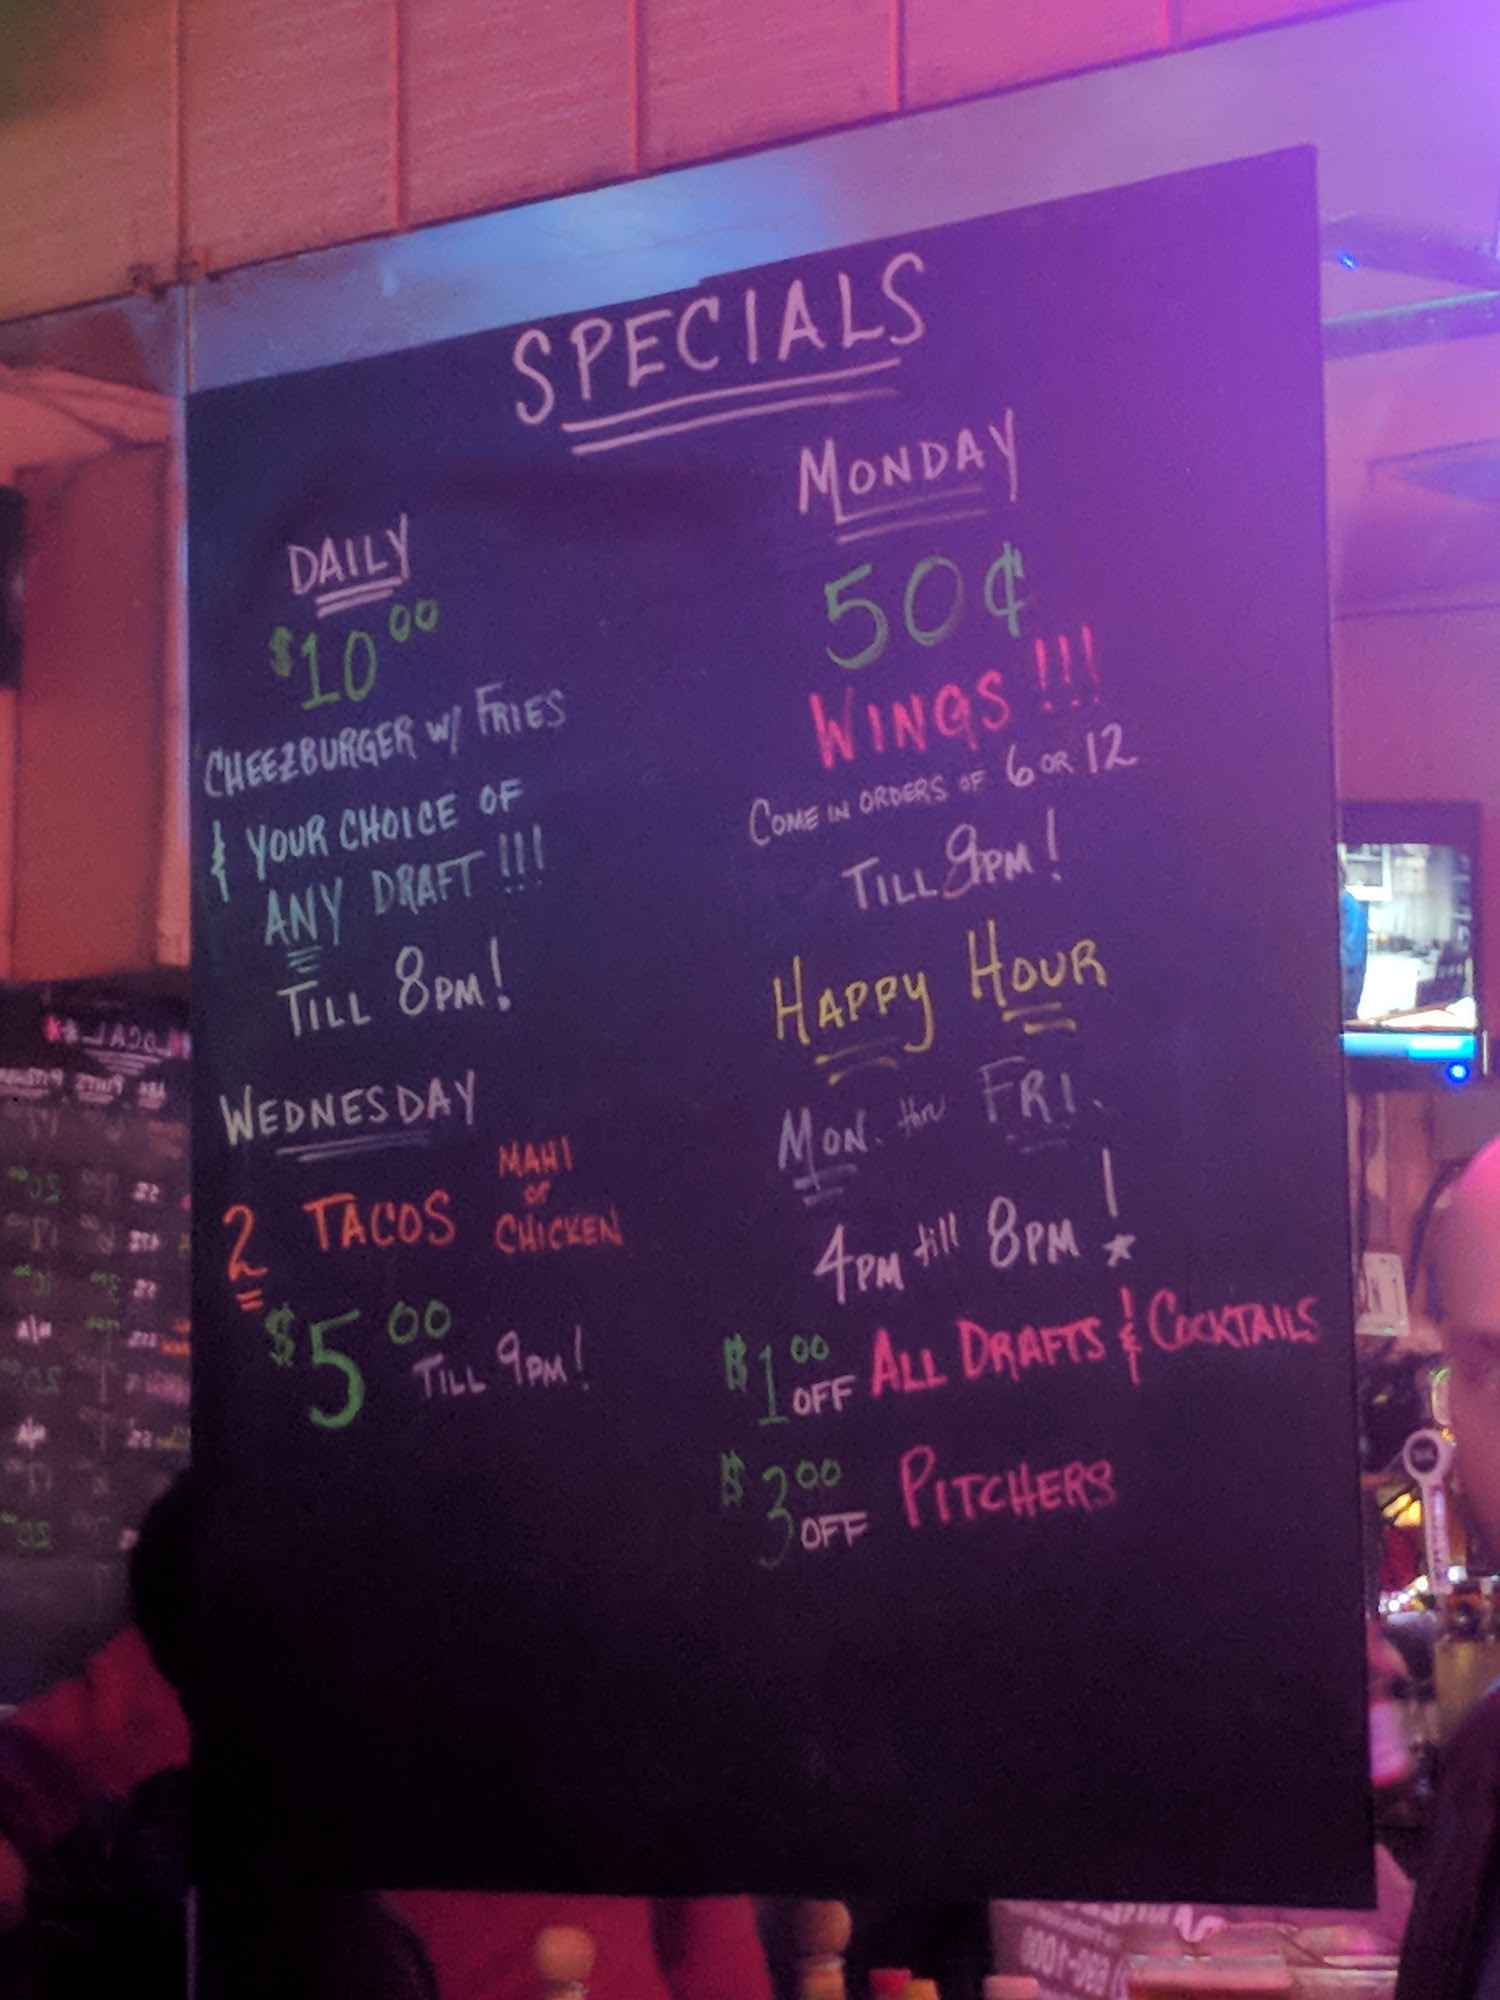 SPECIALS
DAILY
$10.00
CHEEZBURGER W/ FRIES
& YOUR CHOICE OF
ANY DRAFT!!!
TILL 8PM!
WEDNESDAY
2 TACOS MAHI
or
CHICKEN
$5.00 TILL 9PM!
MONDAY
50¢
WINGS!!!
COME IN ORDERS OF 6 OR 12
TILL 9PM!
HAPPY HOUR
MON. thru FRI.
4PM till 8PM!
$1.00 OFF ALL DRAFTS & COCKTAILS
$3.00 OFF PITCHERS
LOCAL